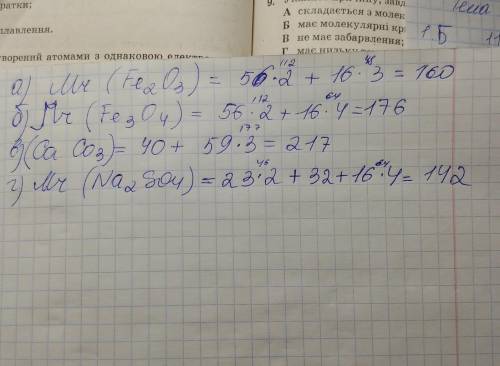 ратки;
плавлення.
творений атомами з однаковою
9.
А складається з молек
Б має молекулярні кр
В не має забарвлення;
Г має низьку
Тема
1.Б
а) Mr (Fe₂O₃) = 56·2 + 16·3 = 160
112 48
б) Mr (Fe₃O₄) = 56·2 + 16·4 = 176
112 64
в) (Ca CO₃) = 40 + 59·3 = 217
177
г) Mr (Na₂SO4) = 23·2 + 32 + 16·4 = 142
46 64